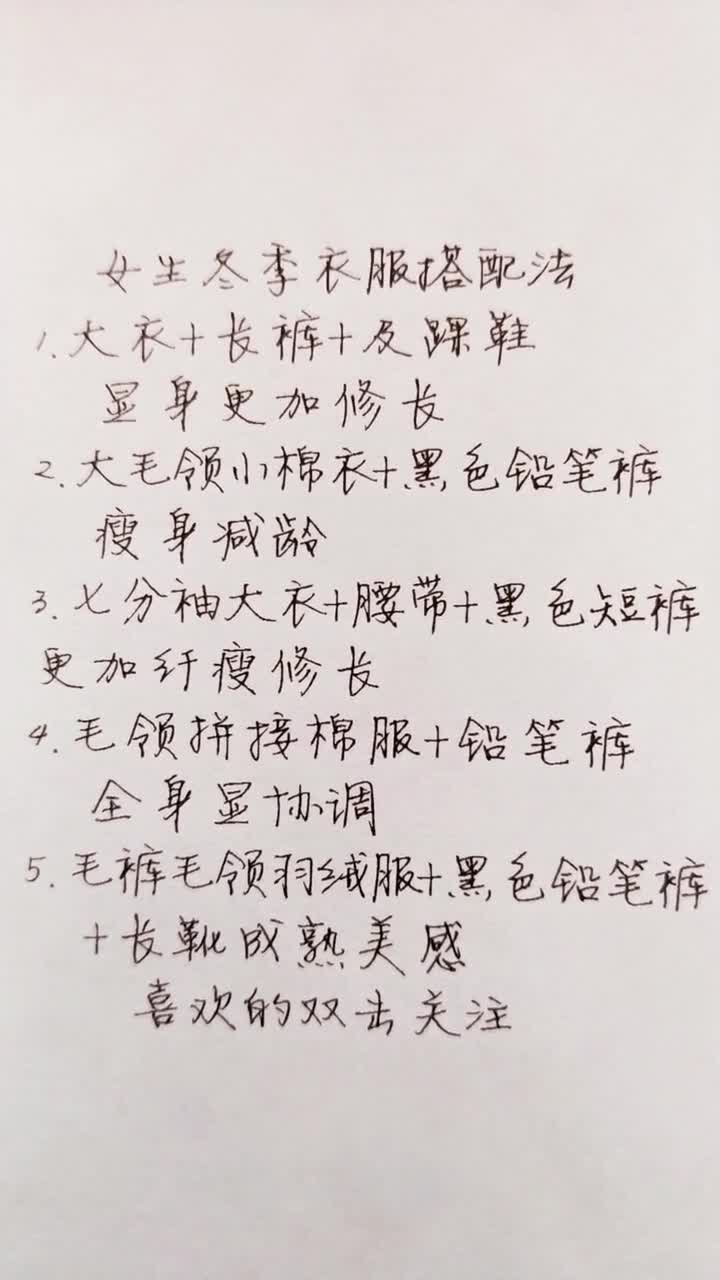 女生冬季衣服搭配法
1.大衣+长裤+及踝鞋
显身更加修长
2.大毛领小棉衣+黑色铅笔裤
瘦身减龄
3.七分袖大衣+腰带+黑色短裤
更加纤瘦修长
4.毛领拼接棉服+铅笔裤
全身显协调
5.毛裤毛领羽绒服+黑色铅笔裤
+长靴成熟美感
喜欢的双击关注